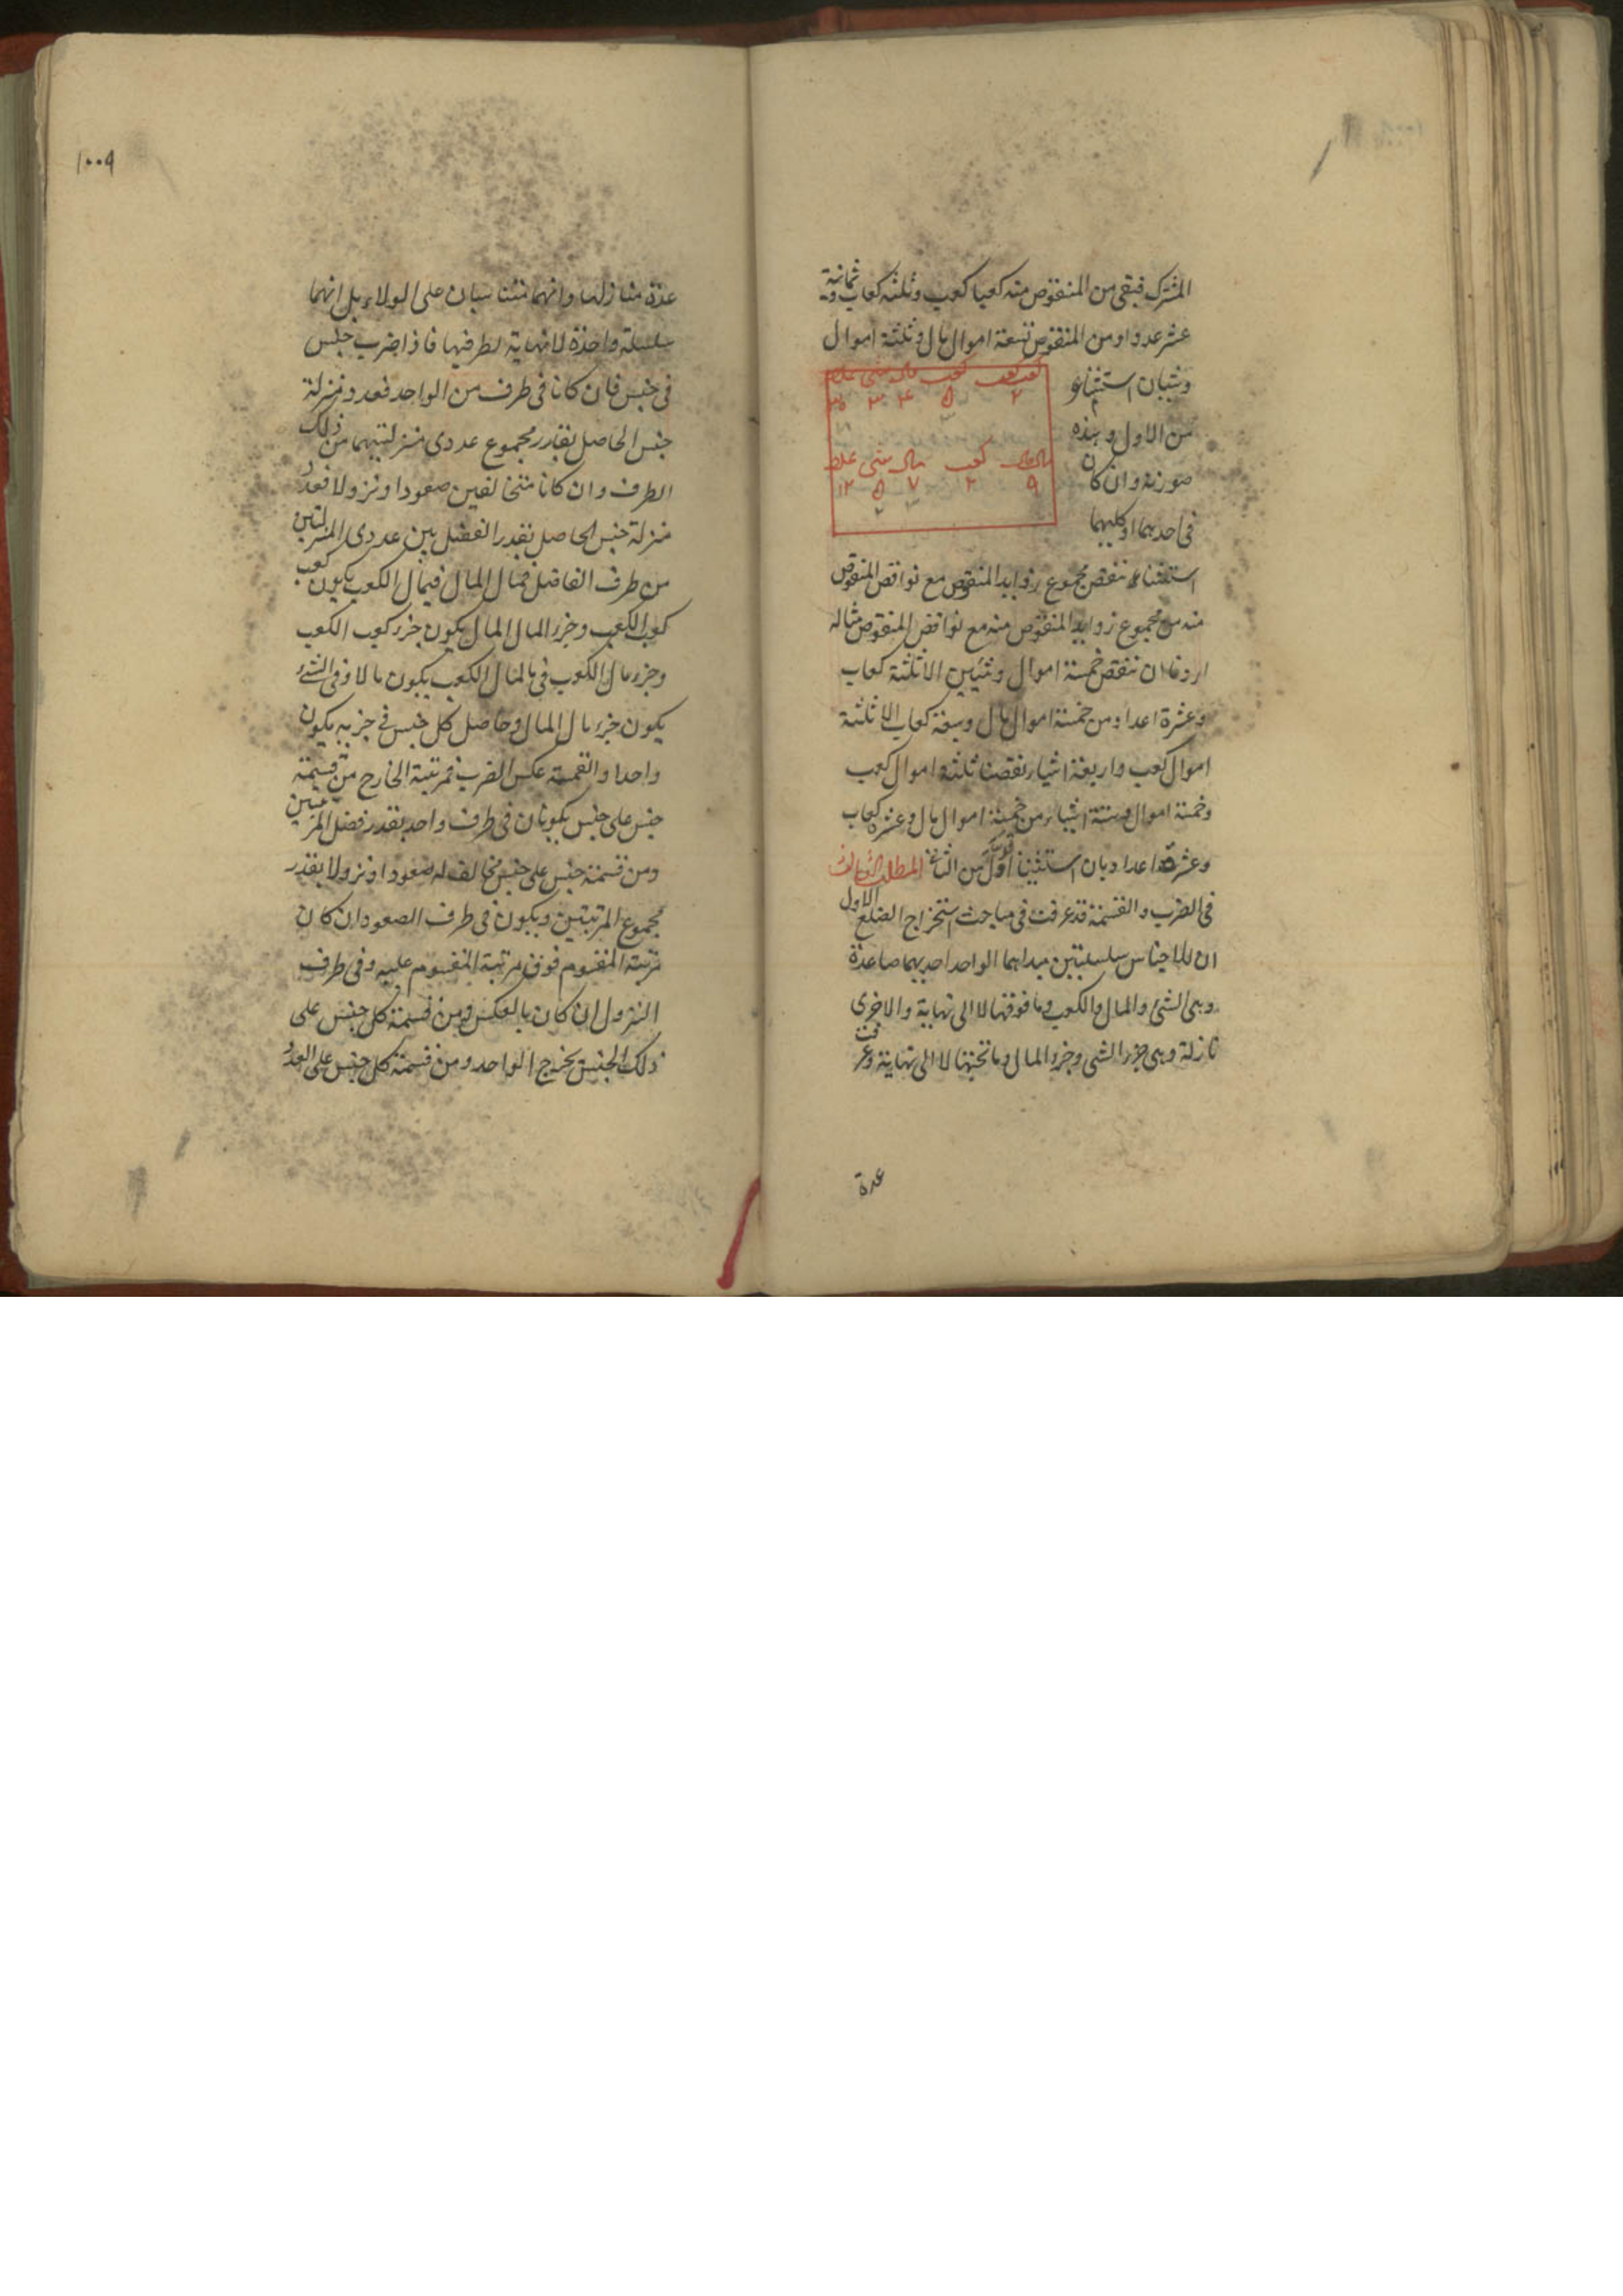 المشترك فيبقى من المنقوص منه كعبا كعب وثلثه كعاب وثمانية
عشر عددا ومن المنقوص تسعة اموال مال وثلثة اموال
وشيئان استثناء
كعب كعب كعب مال شئ عدد
٢ ٥ ٤ ٣
من الاول وهذه
مال مال كعب مال شئ عدد
صورته وان كان
٩ ٢ ٧ ٥ ١٢
٣ ٢
فى احدهما او كليهما
استثناء ننقص مجموع زوايد المنقوص مع نواقص المنقوص
منه من مجموع زوايد المنقوص منه مع نواقص المنقوص مثاله
اردنا ان ننقص خمسة اموال وشيئين الا ثلثة كعاب
وعشرة اعداد من خمسة اموال مال وسبعة كعاب الا ثلثة
اموال كعب واربعة اشياء نقصنا ثلثة اموال كعب
وخمسة اموال وستة اشياء من خمسة اموال مال وعشرة كعاب
وعشرة اعداد بان استثنينا الاول من الثانى المطلب الثالث
فى الضرب والقسمة قد عرفت فى مباحث استخراج الضلع الاول
ان للاجناس سلسلتين مبداهما الواحد احديهما صاعدة
وهى الشئ والمال والكعب وما فوقها لا الى نهاية والاخرى
نازلة وهى جزء الشى وجزء المال وما تحتها لا الى نهاية وعرفت
عدة
١٠٠٩
عدة منازلها وانهما متناسبان على الولاء بل انهما
سلسلة واحدة لا نهاية لطرفيها فاذا ضرب جنس
فى جنس فان كانا فى طرف من الواحد فعدد منزلة
جنس الحاصل بقدر مجموع عددى منزلتيهما من ذلك
الطرف وان كانا متخالفين صعودا ونزولا فعدد
منزلة جنس الحاصل بقدر الفضل بين عددى المنزلتين
من طرف الفاضل فمال المال فى مال الكعب يكون كعب
كعب الكعب وجزء المال المال يكون جزء كعب الكعب
وجزء مال الكعب فى مال مال الكعب يكون مالا وفى الشئ
يكون جزء مال المال وحاصل كل جنس فى جزئه يكون
واحدا والقسمة عكس الضرب فمرتبة الخارج من قسمة
جنس على جنس يكونان فى طرف واحد بقدر فضل المرتبتين
ومن قسمة جنس على جنس مخالف له صعودا ونزولا بقدر
مجموع المرتبتين ويكون فى طرف الصعود ان كان
مرتبة المقسوم فوق مرتبة المقسوم عليه وفى طرف
النزول ان كان بالعكس ومن قسمة كل جنس على
ذلك الجنس يخرج الواحد ومن قسمة كل جنس على العدد